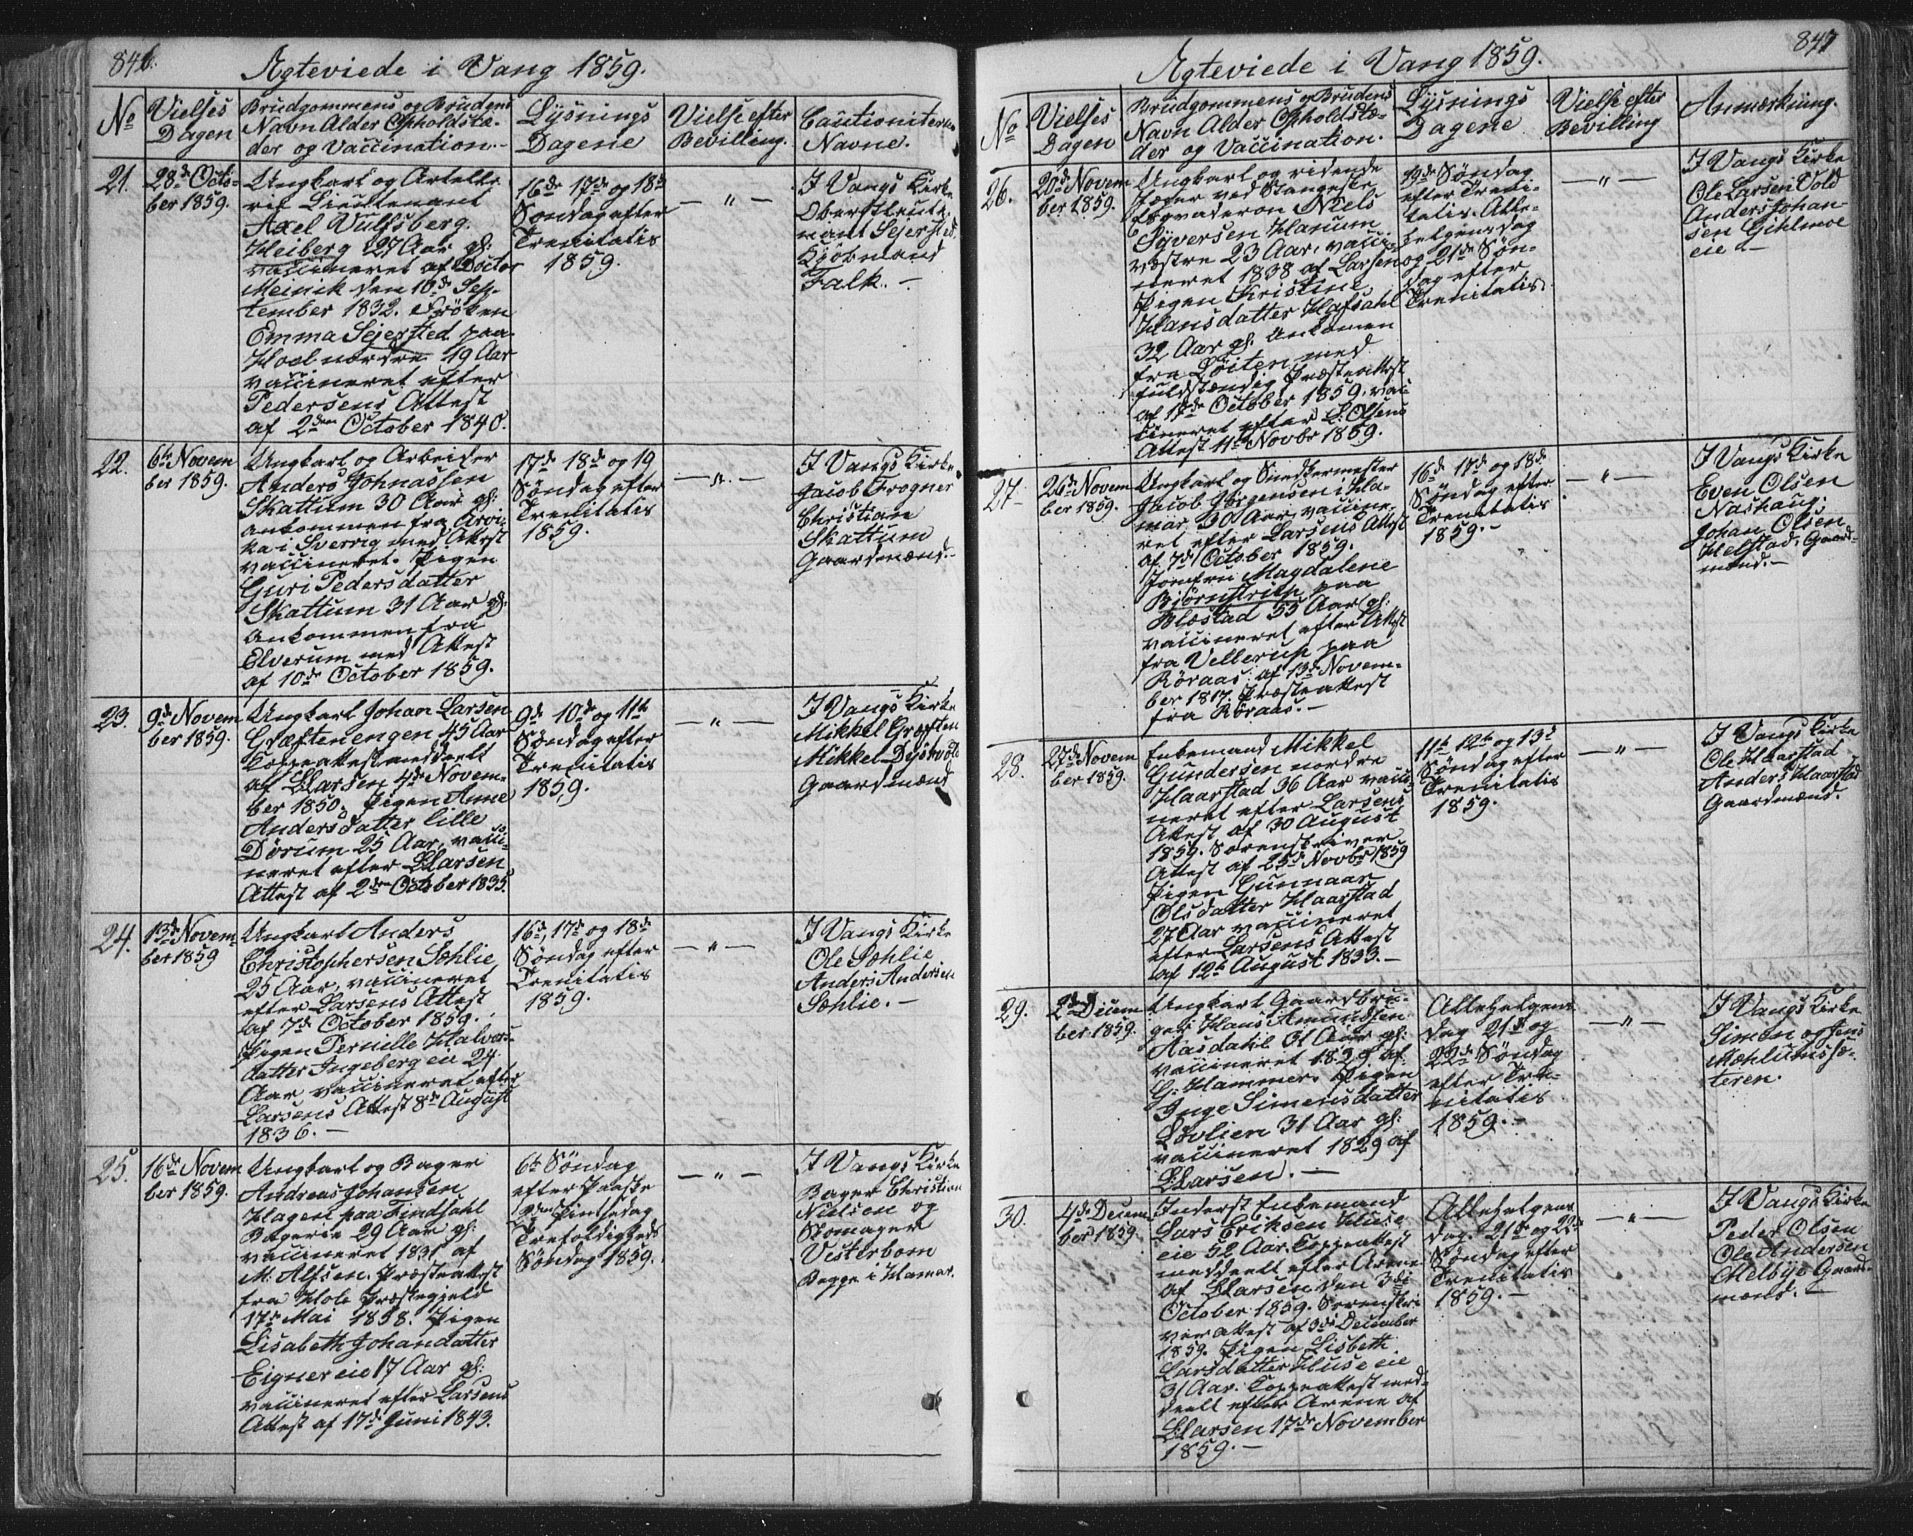 846.
Ægteviede i Vang 1859.
No
Vielses Dagen
Brudgommens og Brudens
Navn Alder Opholdstæ-
der og Vaccination.
Lysnings Dagene
Vielse efter Bevilling.
Cautionisternes Navne.
21.
28de Octo-
ber 1859.
Ungkarl og Artelle-
rie Lieutenant
Axel Vulfsberg
Heiberg 27 Aar gl:
vaccineret af Doctor
Meinik den 10de Sep-
tember 1832. Frøken
Emma Sejersted paa
Hoel nordre 19 Aar
vaccineret efter
Pedersens Attest
af 2den October 1840.
16de 17de og 18de
Søndag efter
Trenitatis
1859.
— " —
I Vangs Kirke
Oberstleute-
nant Sejersted,
Kjøbmand
Falk. —
22.
6te Novem
ber 1859.
Ungkarl og Arbeider
Anders Johnassen
Skattum 30 Aar gl:
ankommen fra Arvi-
ka i Sverrig med Attest
vaccineret. Pigen
Guri Pedersdatter
Skattum 31 Aar gl:
ankommen fra
Elverum med Attest
af 10de October 1859.
17de 18de og 19
Søndag efter
Trenitatis
1859.
— " —
I Vangs Kirke
Jacob Frogner
Christian
Skattum
Gaardmænd. —
23.
9de Novem
ber 1859.
Ungkarl Johan Larsen
Græftenengen 45 Aar
Koppeattest meddeelt
af LLarsen 4de Novem-
ber 1850. Pigen Anne
Andersdatter lille
Dørum 25 Aar, vacci-
neret efter LLarsen
Attest af 2den October 1835.
9de 10de og 11te
Søndag efter
Trenitatis
1859.
— " —
I Vangs Kirke
Mikkel Græften
Mikkel Dystvold
Gaardmænd
24.
13de Novem-
ber 1859
Ungkarl Anders
Christophersen Sæhlie
25 Aar, vaccineret
efter Larsens Attest
af 7de October 1859.
Pigen Pernelle Halvors-
datter Ingeberg eie 24
Aar vaccineret efter
Larsens Attest 8de August
1836. —
16de, 17de og 18de
Søndag efter
Trenitatis
1859.
— " —
I Vangs Kirke
Ole Sæhlie
Anders Andersen
Sæhlie. —
25.
16de Novem
ber 1859.
Ungkarl og Bager
Andreas Johansen
Hagen paa Findsahl
Bagerie 29 Aar gl:
vaccineret 1831 af
M. Alfsen. Præsteattest
fra Hole Præstegjeld
17de Mai 1858. Pigen
Lisabeth Johandatter
Eigner eie 17 Aar gl:
vaccineret efter Larsens
Attest af 17de Juni 1843.
6te Søndag
efter Paaske
2den Pintsedag
Trefoldigheds
Søndag 1859.
— " —
I Vangs Kirke
Bager Christian
Nielsen og
Skomager
Vesterborn
Begge i Hamar.
847
Ægteviede i Vang 1859.
No
Vielses Dagen
Brudgommens og Brudens
Navn Alder Opholdstæ-
der og Vaccination.
Lysnings Dagene
Vielse efter Bevilling
Anmærkning.
26.
20de Novem
ber 1859.
Ungkarl og ridende
Jæger ved Stangeske
Esqvaderon Niels
Syversen Hanum
væstre 23 Aar. vacci-
neret 1838 af Larsen
Pigen Kristine
Hansdatter Hafsahl
32 Aar gl: ankomen
fra Løiten med
fuldstændig Præsteattest
af 17de October 1859. vac
cineret efter L: Olsens
Attest 4de Novbr 1859.
19de Søndag
efter Treni-
tatis. Alle-
helgensdag
og 21de Søn-
dag efter
Trenitatis.
— " —
I Vangs Kirke
Ole Larsen Vold
Anders Johan-
sen Gihlmoe
eie —
27.
26de Novem
ber 1859.
Ungkarl og Snedkermester
Jacob Jørgensen i Ha-
mar 30 Aar, vaccine-
ret efter Larsens Attest
af 7de October 1859.
Jomfru Magdalene
Bjørnstrith paa
Blæstad 55 Aar gl:
vaccineret efter Attest
fra Vellerup paa
Røraas: af 13de Novem-
ber 1817. Præsteattest
fra Røraas. —
16de 17de og 18de
Søndag efter
Trenitatis
1859. —
— " —
I Vangs Kirke
Even Olsen
Nashaug.
Johan Olsen
Helstad. Gaard-
mænd. —
28.
27de Novem
ber 1859.
Enkemand Mikkel
Gundersen nordre
Haarstad 36 Aar vacci
neret efter Larsens
Attest af 30 August
1859. Sorenskriver
Attest af 25de Novbr 1859
Pigen Gunnaar
Olsdatter Haarstad
27 Aar vaccineret
efter Larsens Attest
af 12te August 1833. —
11te 12te og 13de
Søndag efter
Trenitatis
1859.
— " —
I Vangs Kirke
Ole Haarstad
Anders Haarstad
Gaardmænd.
29.
2den Decem
ber 1859.
Ungkarl Gaardbru-
ger Hans Amundsen
Aasdahl 31 Aar gl:
vaccineret 1829 af
G: Hammer. Pigen
Inge Simensdatter
Løvlien 31 Aar gl:
vaccineret 1829 af
LLarsen. —
Allehelgens
dag 21de og
22de Søndag
efter Tre-
nitatis
1859. —
— " —
I Vangs Kirke
Simen og Jens
Mæhlumssæ-
teren.
30.
4de Decem
ber 1859.
Inderst Enkemand
Lars Eriksen Huse
eie 52 Aar. Koppeattest
meddeelt efter Arene
af LLarsen den 3die
October 1859. Sorenskri
ver attest af 3de December
1859. Pigen Lisbeth
Larsdatter Huse eie
31 Aar. Koppeattest med-
deelt efter Arene af
LLarsen 17de November
1859. —
Allehelgens
dag. 21de og 22de
Søndag efter
Trenitatis
1859. —
— " —
I Vangs Kirke
Peder Olsen
Ole Andersen
Melbye Gaard-
mænd. —